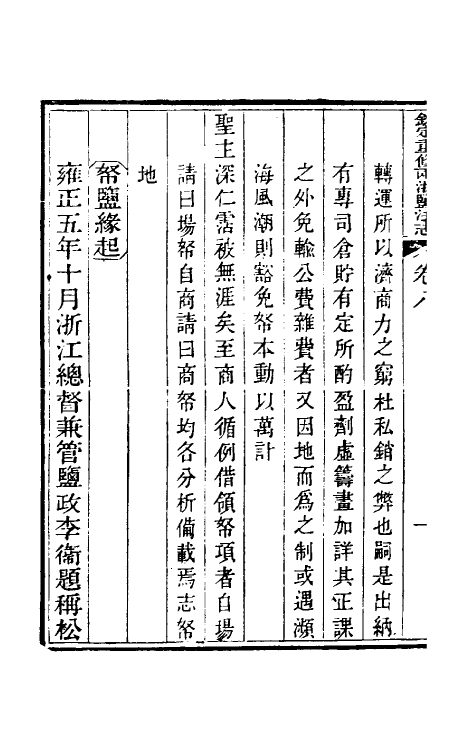 欽定重修兩浙鹽法志 卷八 一
轉運所以濟商力之窮杜私銷之弊也嗣是出納
有專司倉貯有定所酌盈劑虛籌畫加詳其正課
之外免輸公費雜費者又因地而為之制或遇瀕
海風潮則豁免帑本動以萬計
聖主深仁霑被無涯矣至商人循例借領帑項者自場
請曰場帑自商請曰商帑均各分析備載焉志帑
地
帑鹽緣起
雍正五年十月浙江總督兼管鹽政李衛題稱松